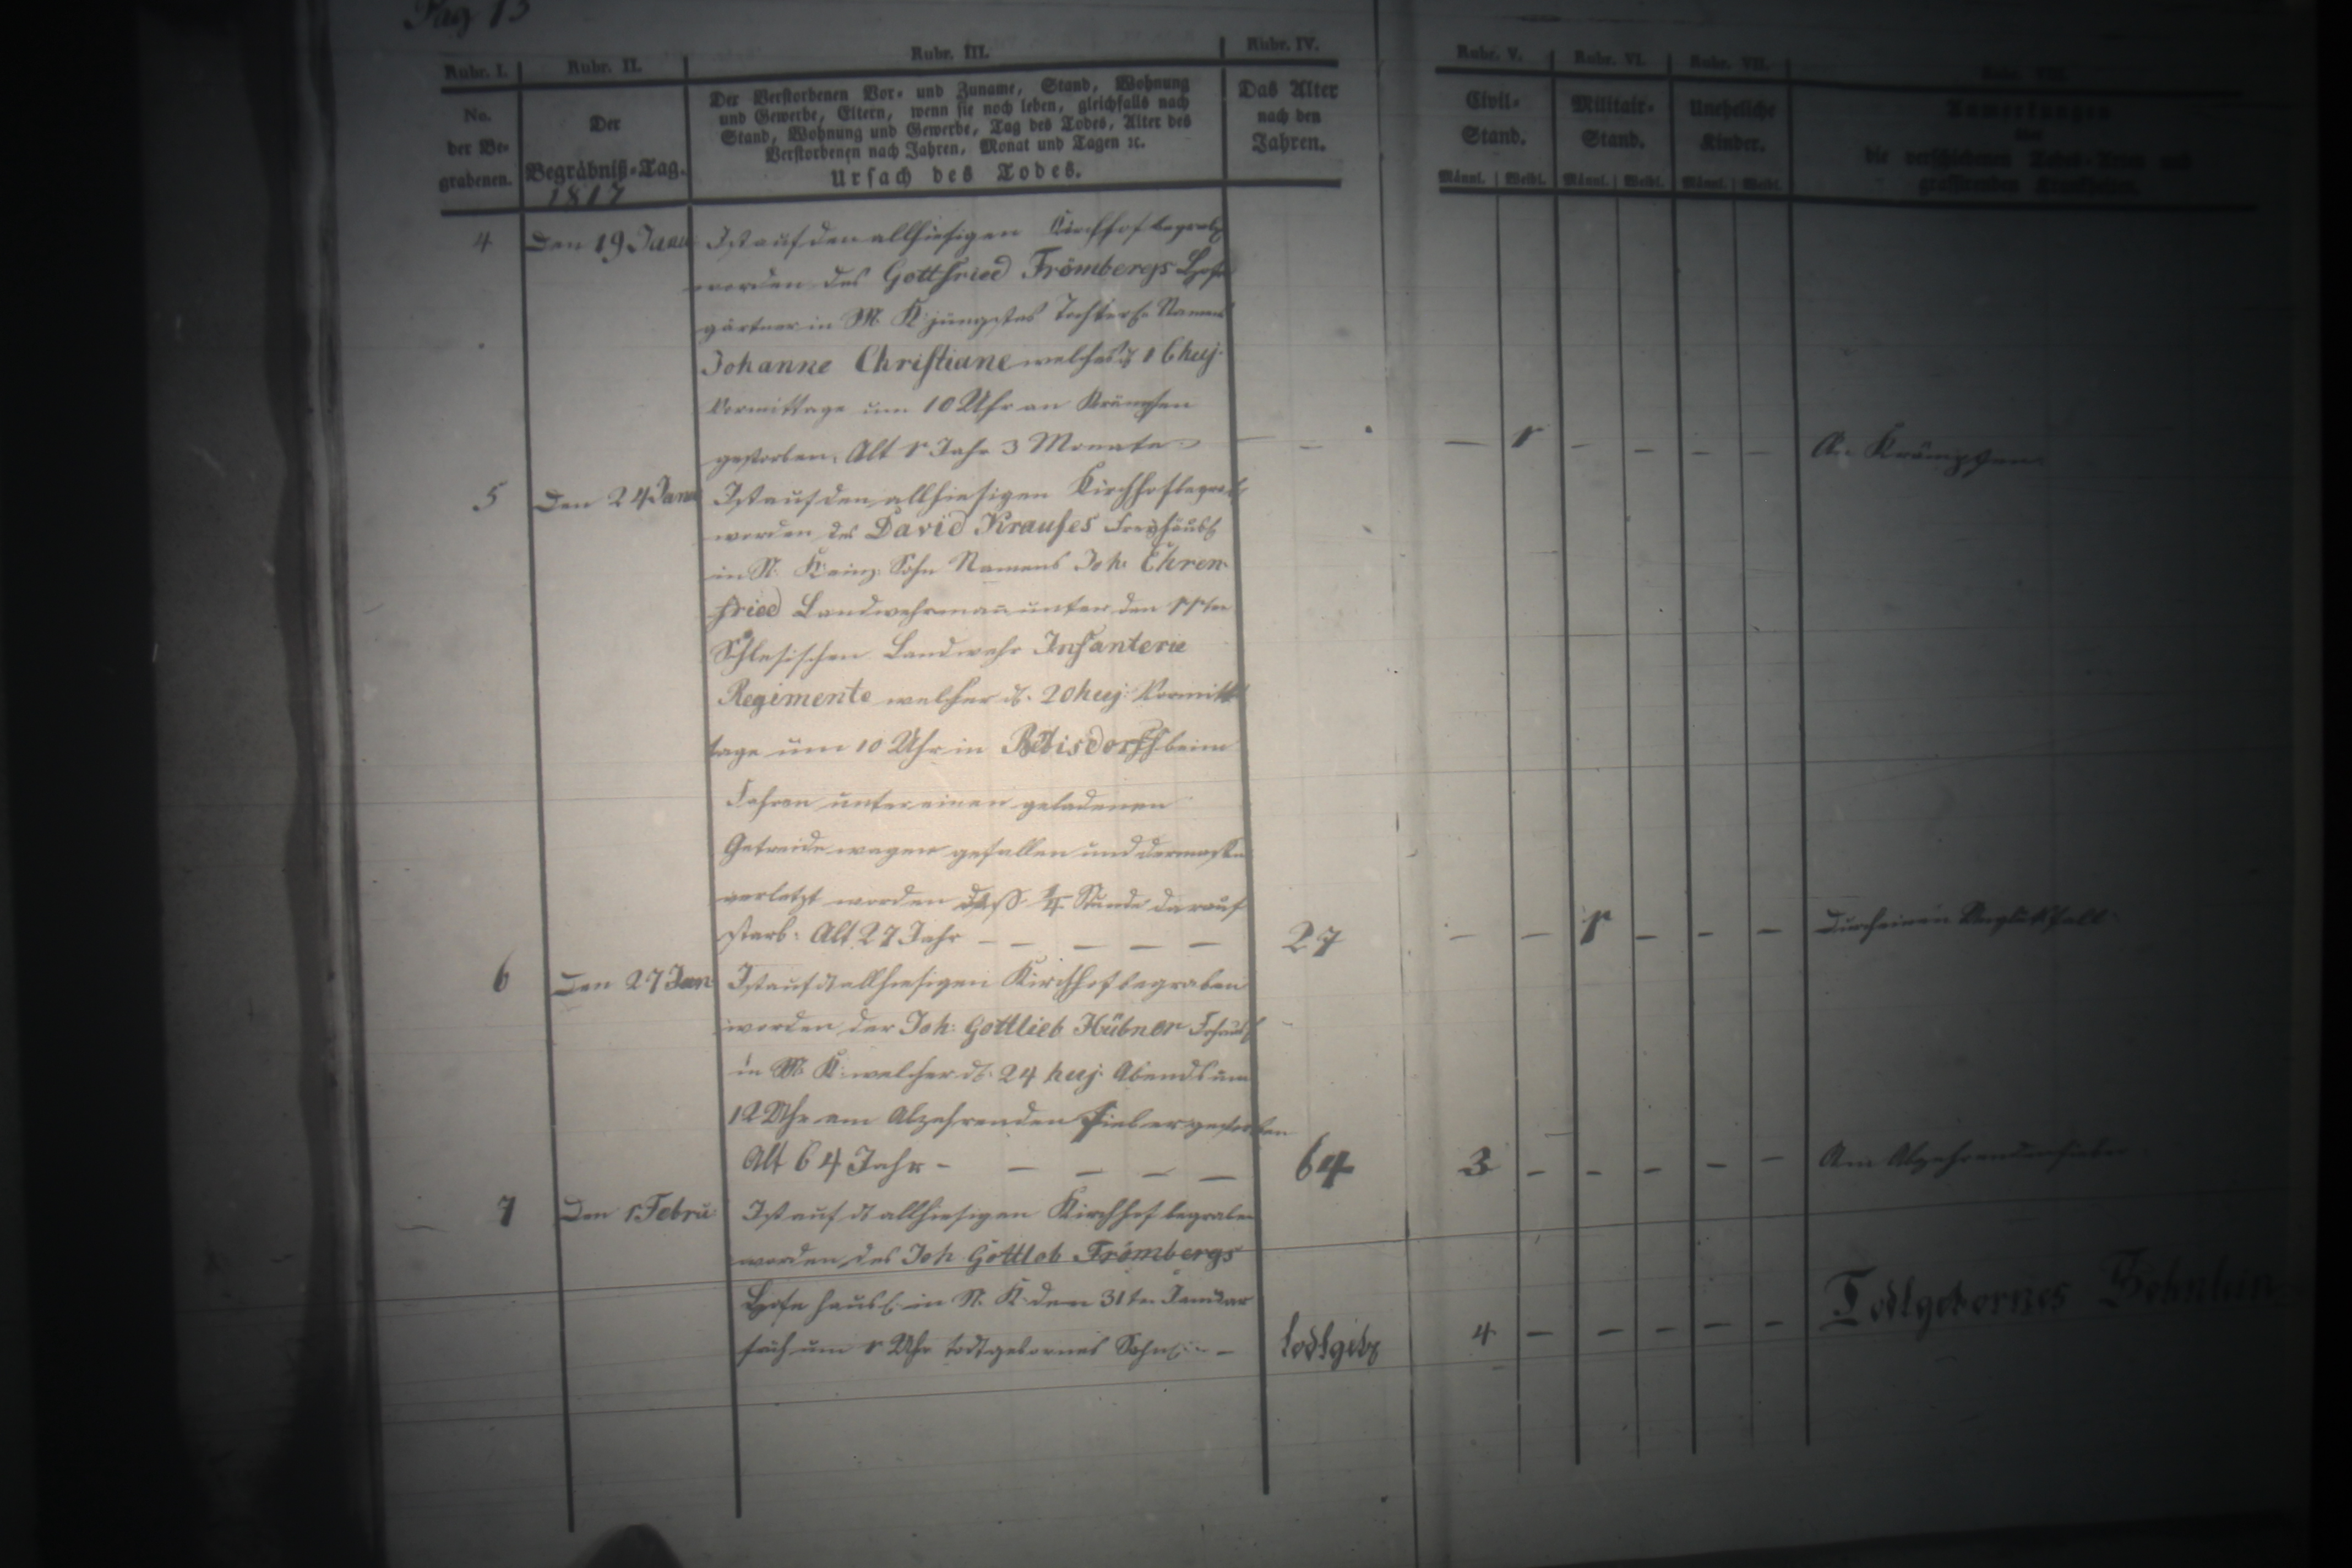 Pag 13
Rubr. I. Rubr. II. Rubr. III. Rubr. IV. Rubr. V. Rubr. VI. Rubr. VII. Rubr. VIII.
No. der Be-grabenen.
Der Begräbniß-Tag.
1817
Der Verstorbenen Vor- und Zuname, Stand, Wohnung
und Gewerbe, Eltern, wenn sie noch leben, gleichfalls nach
Stand, Wohnung und Gewerbe, Tag des Todes, Alter des
Verstorbenen nach Jahren, Monat und Tagen ꝛc.
Ursach des Todes.
Das Alter
nach den
Jahren.
Civil-
Stand.
Männl. Weibl.
Militair-
Stand.
Männl. Weibl.
Uneheliche
Kinder.
Männl. Weibl.
Anmerkungen
über
die verschiedenen Todes-Arten und
grassirenden Krankheiten.
4 Den 19 Janu Ist auf den allhiesigen Kirchhof begrab
worden des Gottfried Frömbergs Hofe
gärtner in M. K. jüngstes Namens
Johanne Christiane welches d 16 huj.
Vormittage um 10 Uhr an Krämpfen
gestorben. Alt 1 Jahr 3 Monate — — — 1 — — — — An Krämpfen
5 Den 24 Janu Ist auf den allhiesigen Kirchhof begrab
worden des David Krauses Freyhäusl
in N. K. einz. Sohn Namens Joh. Ehren-
fried Landwehrmañ unter den 11ten
Schlesischen Landwehr Infanterie
Regimente welcher d. 20 huj. Vormitt
tage um 10 Uhr in beim
Fahren unter einen geladenen
Getreide wagen gefallen und dermaßen
verletzt worden daß ¼ Stunde darauf
starb. Alt 27 Jahr — — — — — 27 — — 1 — — — Durch einen Unglüksfall
6 Den 27 Jan Ist auf d allhiesigen Kirchhof begraben
worden der Joh. Gottlieb Hübner
in M. K. welcher d. 24 huj. Abends um
12 Uhr am Abzehrenden Fieber gestorben
Alt 64 Jahr — — — — — 64 3 — — — — — Am Abzehrenden fieber
7 Den 1 Febru: Ist auf d allhiesigen Kirchhof begraben
worden des Joh. Gottlob Frömbergs
Hofe häusl. in N. K. den 31ten Januar
früh um 1 Uhr todtgebornes Söhnl. — todtgeb 4 — — — — — Todtgebornes Söhnlein